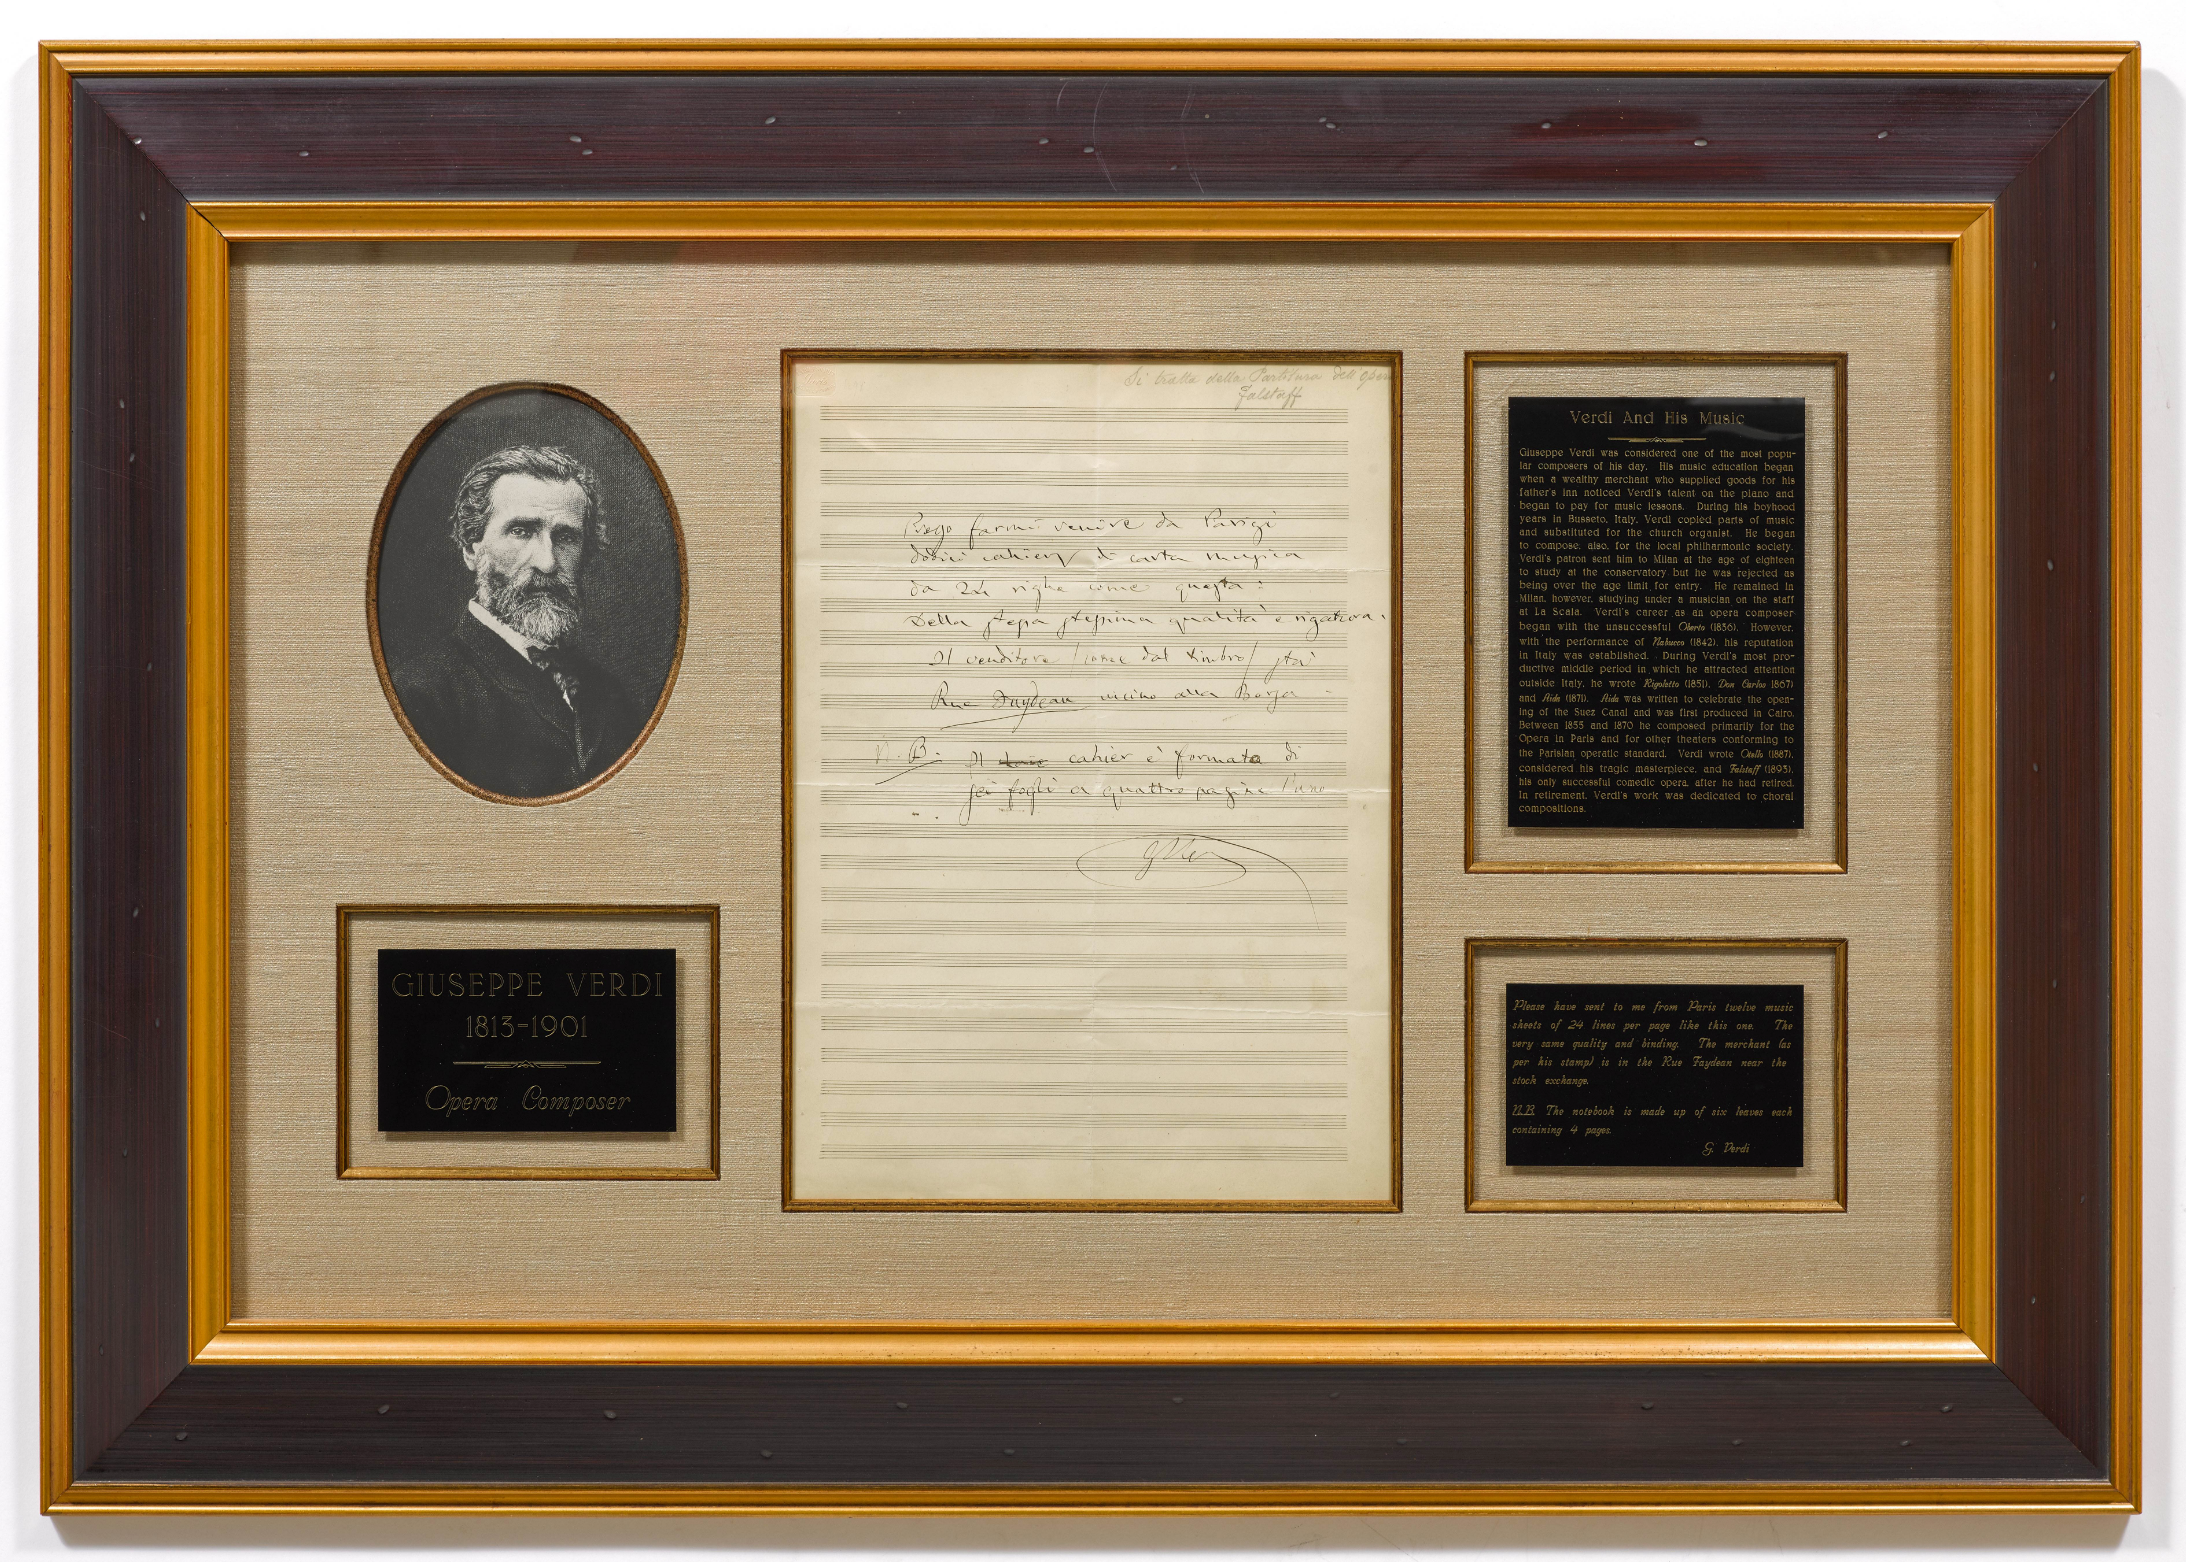 GIUSEPPE VERDI
1813-1901
Opera Composer
Si tratta della Partitura dell'
Falstaff
Prego farmi venire da Parigi
dodici cahiers di carta musica
da 24 righe come questa:
Della stessa stessissima qualità e rigatura.
Il venditore (come dal timbro) sta
Rue Faydeau vicino alla Borsa -
N. B. Il cahier è formato di
sei fogli a quattro pagine l'uno
G Ver
Verdi And His Music
Giuseppe Verdi was considered one of the most popu-
lar composers of his day. His music education began
when a wealthy merchant who supplied goods for his
father's inn noticed Verdi's talent on the piano and
began to pay for music lessons. During his boyhood
years in Busseto, Italy, Verdi copied parts of music
and substituted for the church organist. He began
to compose, also, for the local philharmonic society.
Verdi's patron sent him to Milan at the age of eighteen
to study at the conservatory but he was rejected as
being over the age limit for entry. He remained in
Milan, however, studying under a musician on the staff
at La Scala. Verdi's career as an opera composer
began with the unsuccessful Oberto (1836). However,
with the performance of Nabucco (1842), his reputation
in Italy was established. During Verdi's most pro-
ductive middle period in which he attracted attention
outside Italy, he wrote Rigoletto (1851), Don Carlos 1867)
and Aida (1871). Aida was written to celebrate the open-
ing of the Suez Canal and was first produced in Cairo.
Between 1855 and 1870 he composed primarily for the
Opera in Paris and for other theaters conforming to
the Parisian operatic standard. Verdi wrote Otello (1887),
considered his tragic masterpiece, and Falstaff (1893),
his only successful comedic opera, after he had retired.
In retirement, Verdi's work was dedicated to choral
compositions.
Please have sent to me from Paris twelve music
sheets of 24 lines per page like this one. The
very same quality and binding. The merchant (as
per his stamp) is in the Rue Faydean near the
stock exchange.
N.B. The notebook is made up of six leaves each
containing 4 pages.
G. Verdi